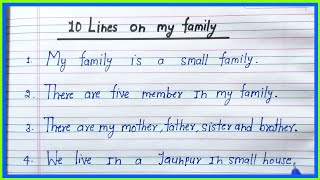 10 Lines on my family
1. My family is a small family.
2. There are five member in my family.
3. There are my mother, father, sister and brother.
4. We live in a Jaunpur in small house.